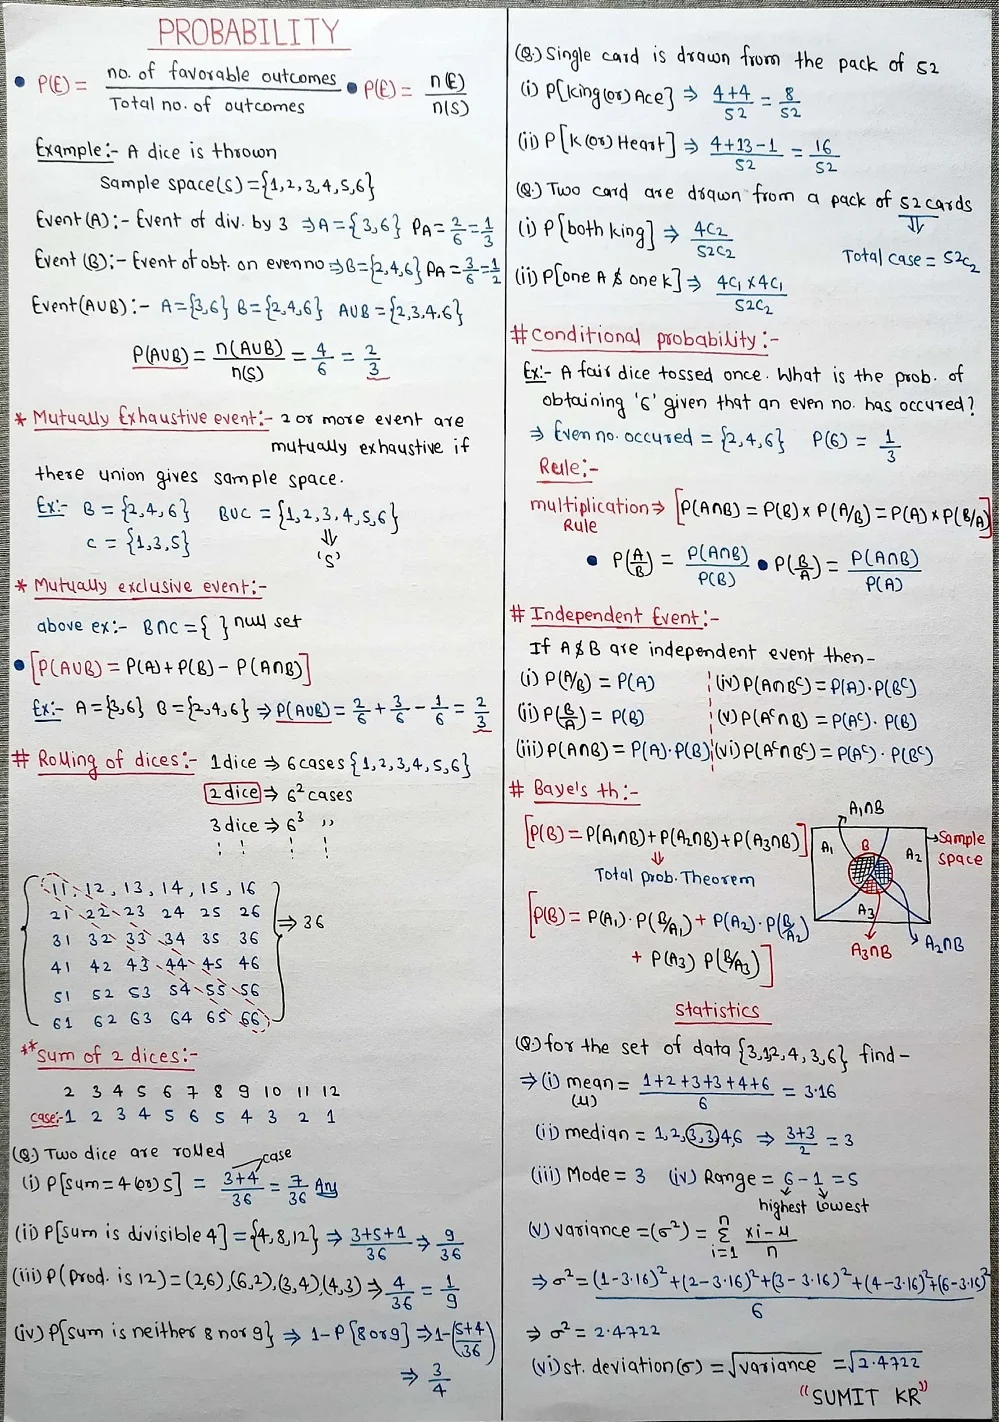 PROBABILITY
• P(E) = no. of favorable outcomes / Total no. of outcomes • P(E) = n(E) / n(S)
Example:- A dice is thrown
Sample space(s) = {1,2,3,4,5,6}
Event(A):- Event of div. by 3 ⇒ A = {3,6} PA = 2/6 = 1/3
Event (B):- Event of obt. on even no ⇒ B = {2,4,6} PA = 3/6 = 1/2
Event(AUB):- A = {3,6} B = {2,4,6} AUB = {2,3,4,6}
P(AUB) = n(AUB) / n(S) = 4/6 = 2/3
* Mutually Exhaustive event:- 2 or more event are
mutually exhaustive if
there union gives sample space.
Ex:- B = {2,4,6} BUC = {1,2,3,4,5,6}
C = {1,3,5} ⇓
'S'
* Mutually exclusive event:-
above ex:- B∩C = { } null set
• [P(AUB) = P(A) + P(B) - P(A∩B)]
Ex:- A = {3,6} B = {2,4,6} ⇒ P(AUB) = 2/6 + 3/6 - 1/6 = 2/3
# Rolling of dices:- 1 dice ⇒ 6 cases {1,2,3,4,5,6}
2 dice ⇒ 6² cases
3 dice ⇒ 6³ ,,
11, 12, 13, 14, 15, 16
21 22 23 24 25 26 ⇒ 36
31 32 33 34 35 36
41 42 43 44 45 46
51 52 53 54 55 56
61 62 63 64 65 66
** Sum of 2 dices:-
2 3 4 5 6 7 8 9 10 11 12
case:- 1 2 3 4 5 6 5 4 3 2 1
(Q.) Two dice are rolled case
(i) P[sum = 4 (or) 5] = 3+4/36 = 7/36 Ans
(ii) P[sum is divisible 4] = {4,8,12} ⇒ 3+5+1/36 ⇒ 9/36
(iii) P(Prod. is 12) = (2,6),(6,2),(3,4)(4,3) ⇒ 4/36 = 1/9
(iv) P[sum is neither 8 nor 9} ⇒ 1-P[8 or 9] ⇒ 1-(5+4/36)
⇒ 3/4
(Q.) Single card is drawn from the pack of 52
(i) P[King (or) Ace] ⇒ 4+4/52 = 8/52
(ii) P[K (or) Heart] ⇒ 4+13-1/52 = 16/52
(Q.) Two card are drawn from a pack of 52 cards
(i) P[both king] ⇒ 4C2/52C2 ⇓ Total case = 52C2
(ii) P[one A & one K] ⇒ 4C1 × 4C1/52C2
# Conditional probability:-
Ex:- A fair dice tossed once. What is the prob. of
obtaining '6' given that an even no. has occured?
⇒ Even no. occured = {2,4,6} P(6) = 1/3
Rule:-
multiplication ⇒ [P(A∩B) = P(B) × P(A/B) = P(A) × P(B/A)]
Rule
• P(A/B) = P(A∩B)/P(B) • P(B/A) = P(A∩B)/P(A)
# Independent Event:-
If A & B are independent event then-
(i) P(A/B) = P(A) (iv) P(A∩Bᶜ) = P(A).P(Bᶜ)
(ii) P(B/A) = P(B) (v) P(Aᶜ∩B) = P(Aᶜ). P(B)
(iii) P(A∩B) = P(A).P(B) (vi) P(Aᶜ∩Bᶜ) = P(Aᶜ). P(Bᶜ)
# Baye's th:-
[P(B) = P(A1∩B) + P(A2∩B) + P(A3∩B)]
⇓
Total prob. Theorem
[P(B) = P(A1). P(B/A1) + P(A2). P(B/A2)
+ P(A3) P(B/A3)]
A1∩B
A1 B A2 → Sample
space
A3
A3∩B A2∩B
Statistics
(Q.) for the set of data {3,12,4,3,6} find-
⇒ (i) mean = 1+2+3+3+4+6/6 = 3.16
(μ)
(ii) median = 1,2,3,3,4,6 ⇒ 3+3/2 = 3
(iii) Mode = 3 (iv) Range = 6 - 1 = 5
highest lowest
(v) variance = (σ²) = n Σ i=1 xi-μ/n
⇒ σ² = (1-3.16)² + (2-3.16)² + (3-3.16)² + (4-3.16)² + (6-3.16)²/6
⇒ σ² = 2.4722
(vi) st. deviation(σ) = √variance = √2.4722
"SUMIT KR"